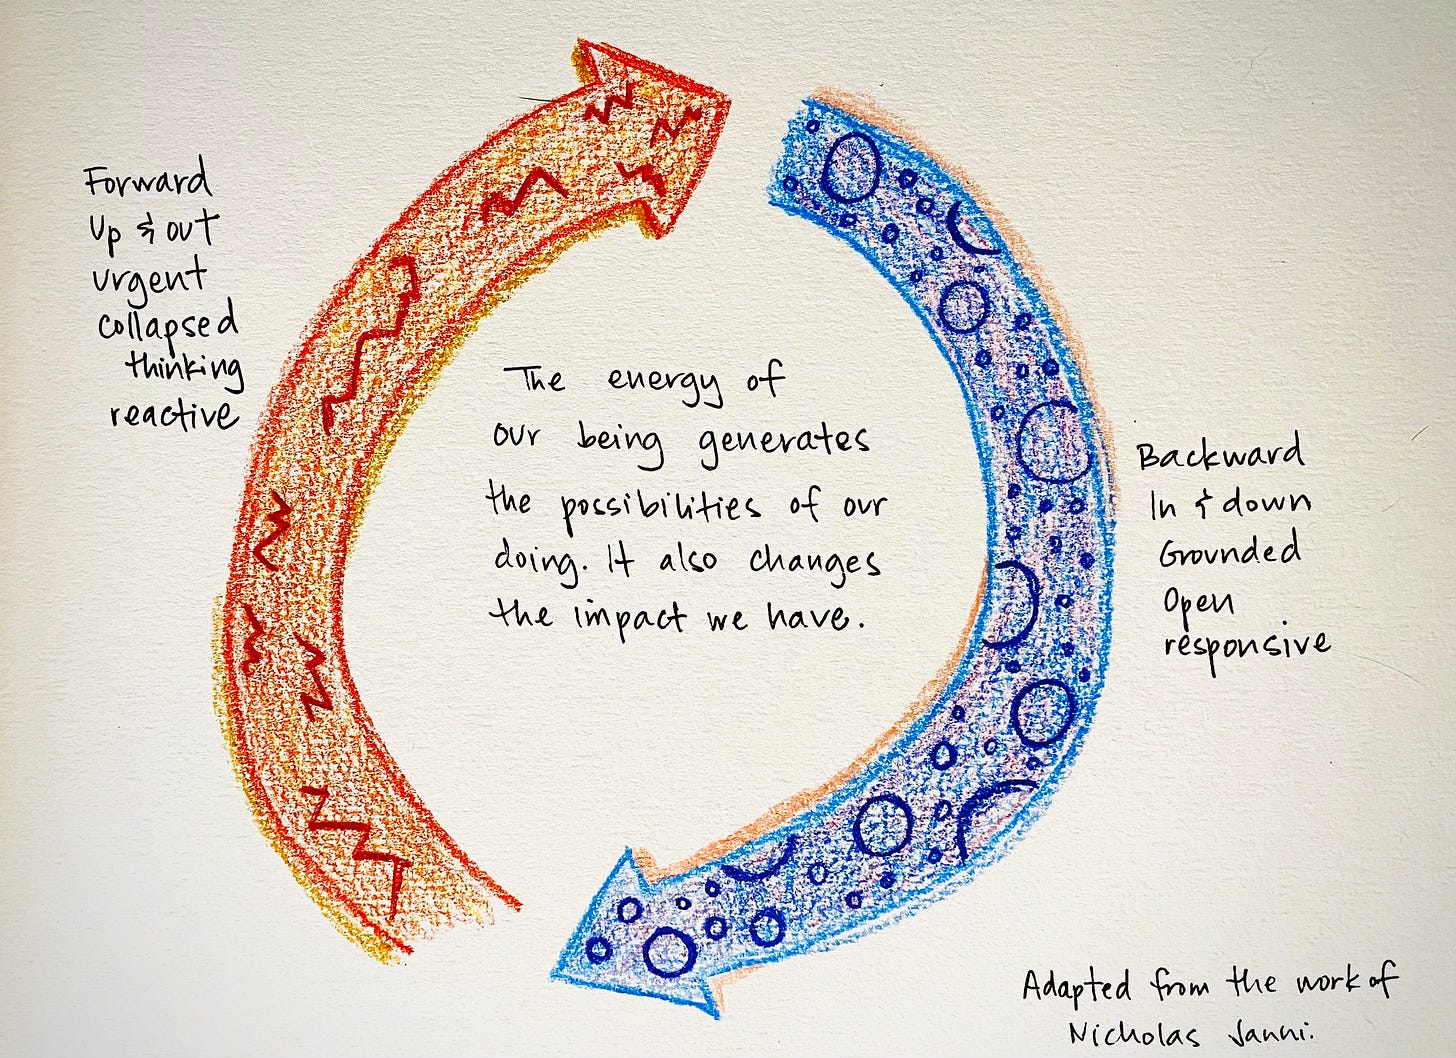 Forward
Up & out
urgent
collapsed
thinking
reactive
The energy of
our being generates
the possibilities of our
doing. It also changes
the impact we have.
Backward
In & down
Grounded
Open
responsive
Adapted from the work of
Nicholas Janni.